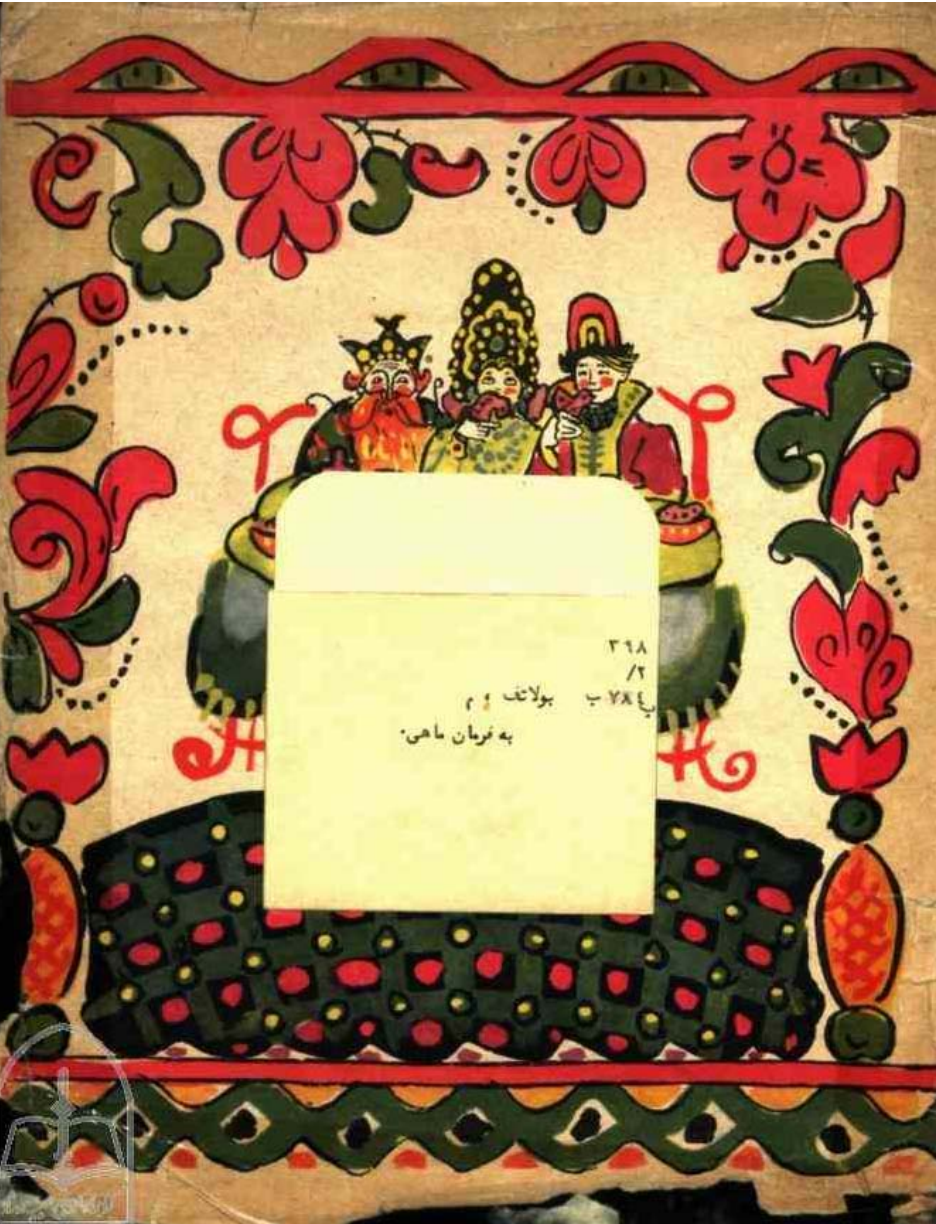 ۳۹۸
/۲
ب۷۸۴ب بولاتف ، م
به فرمان ماهی.